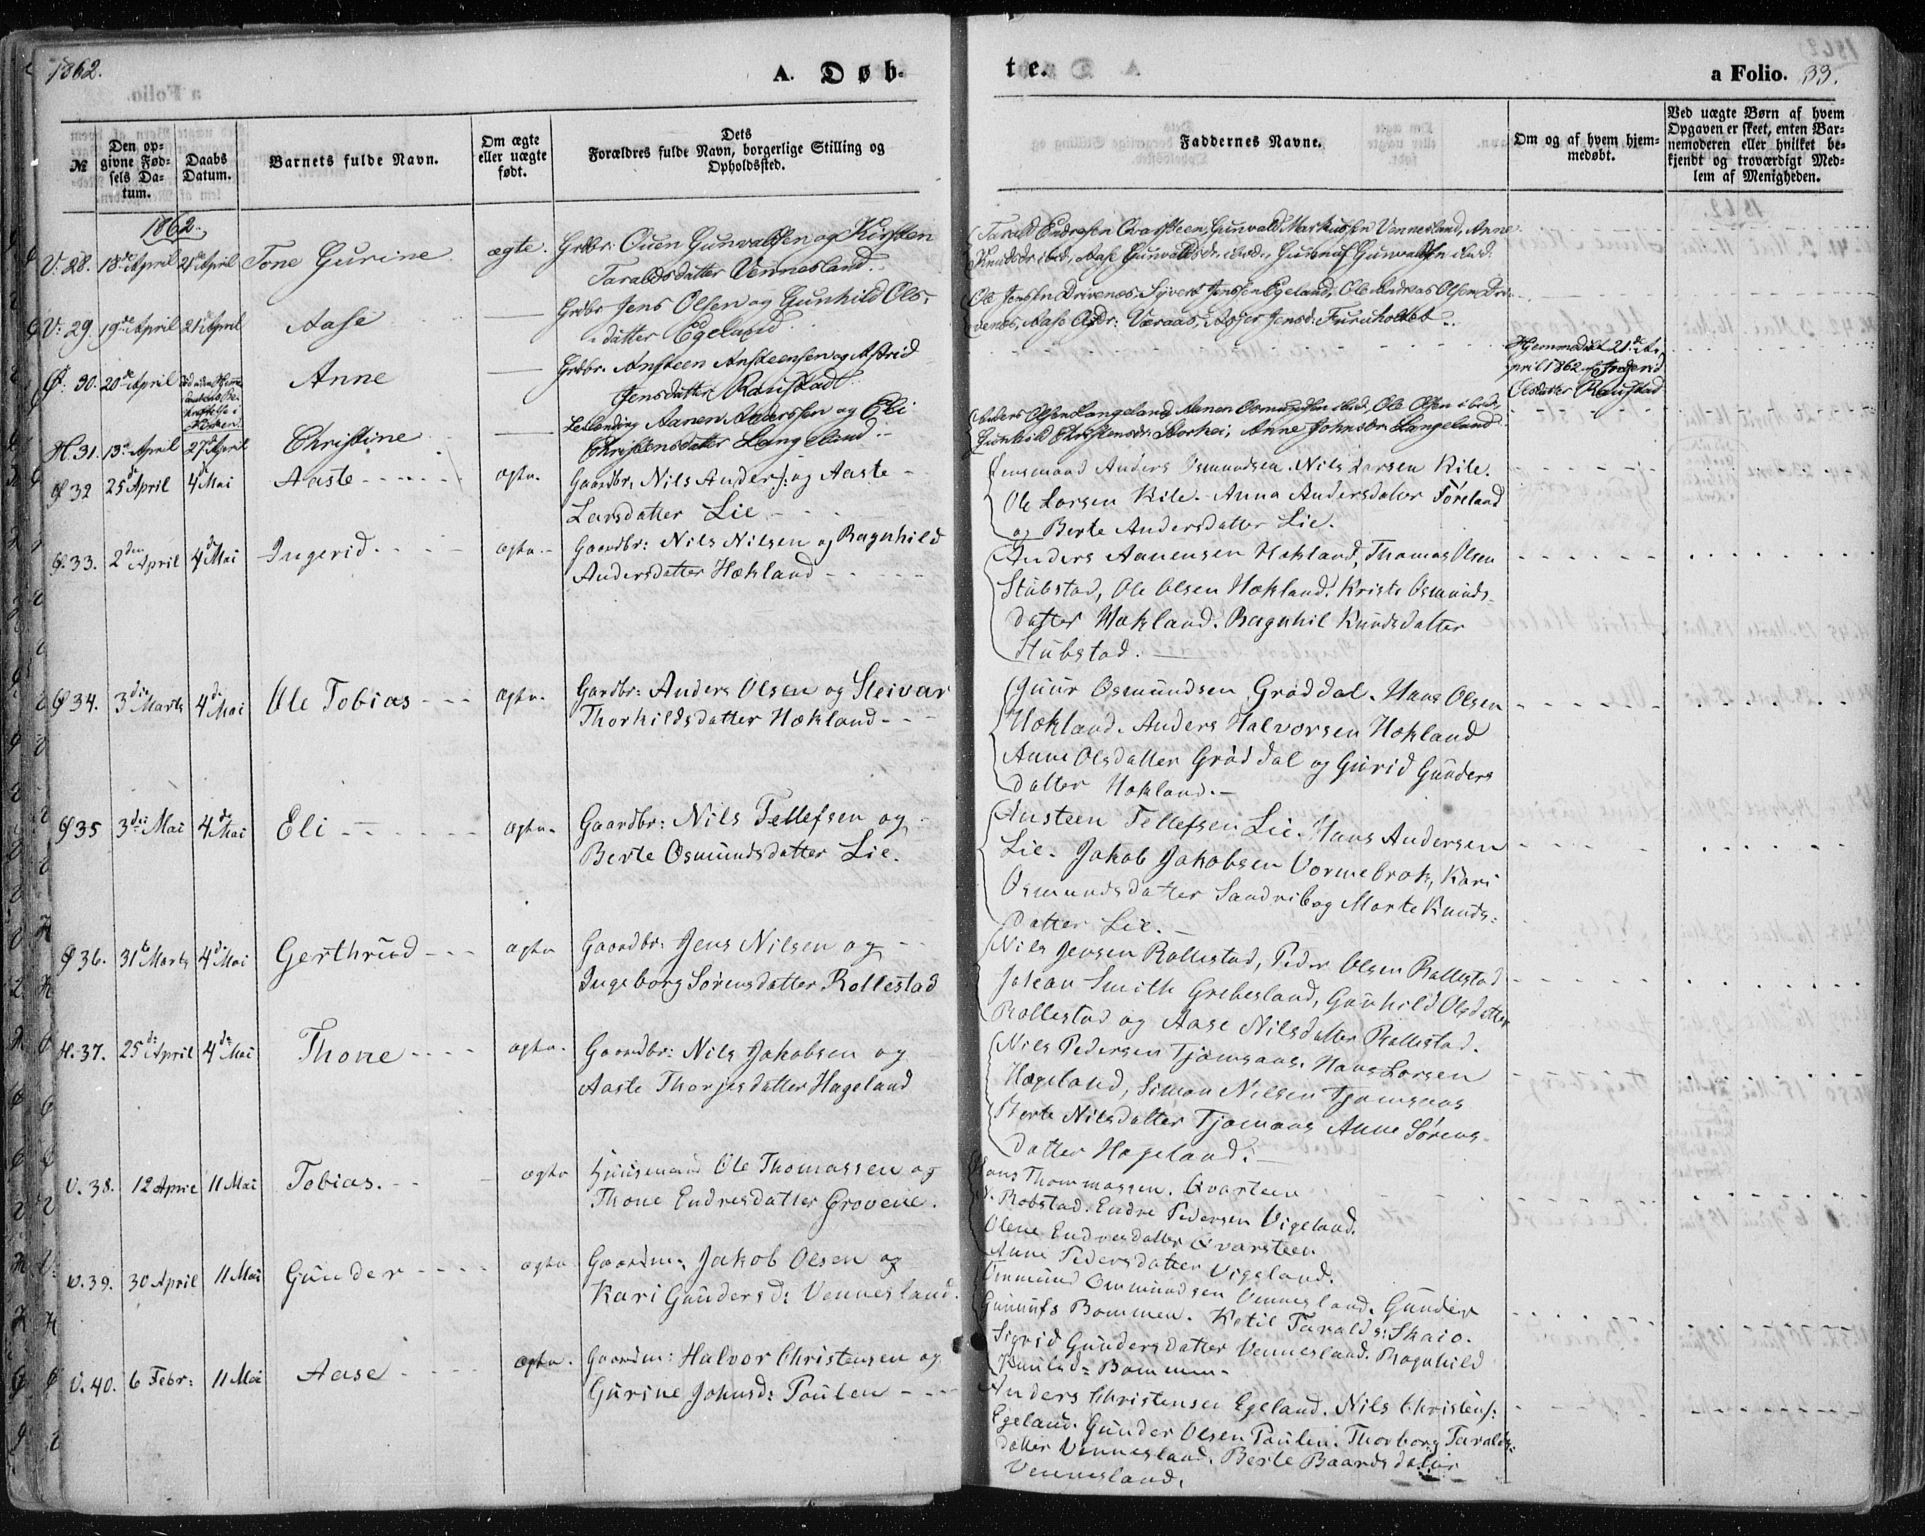 1862.
A. Døb-
te.
a Folio. 33.
№
Den op-
givne Fød-
sels Da-
tum.
Daabs
Datum.
Barnets fulde Navn.
Om ægte
eller uægte
født.
Dets
Forældres fulde Navn, borgerlige Stilling og
Opholdssted.
Faddernes Navne.
Om og af hvem hjem-
medøbt.
Ved uægte Børn af hvem
Opgaven er skeet, enten Bar-
nemoderen eller hvilket be-
kjendt og troværdigt Med-
lem af Menigheden.
1862.
V. 28. 18de April 21de April Tone Gurine. ægte. Grdbr. Ouen Gunvaldsen og Kirsten
Taraldsdatter Vennesland.
Tarald Endresen Qvarsteen, Gunvald Markussen Vennesland, Anne
Knudsdr ibid., Aase Gunvaldsdr. ibid., Gunuf Gunvaldsen ibid.
V. 29. 19de April 21de April Aase — Grdbr. Jens Olsen og Gunhild Ols-
datter Egeland.
Ole Jensen Drivenes, Syvert Jenssen Egeland, Ole Andreas Olsen Dri-
venes, Aase Olsdr: Væraas, Asjer Jensd: Furuholtet.
Ø. 30. 20de April Anne — Grdbr. Ansteen Ansteensen og Astrid
Jensdatter Raustadt.
Kirken.
Hjemmedøbt 21de A-
pril 1862 af Ingerid
Olsdatter Raustad
H. 31. 13de April 27de April Christine — Leilending Aanen Anderssen og Eli
Christensdatter Langeland.
Anders Olsen Langeland, Aanen Osmundsen ibid, Ole Olsen ibid,
Gunhild Christensdr: Storhei, Anne Johnsdr: Langeland.
Ø 32 25de April 4de Mai Aaste ægte. Gaardbr, Nils Anders: og Aaste
Larsdatter Lie
Huusmand Anders Osmundsen. Nils Larsen Kile.
Ole Larsen Kile. Anna Andersdatter Føreland
og Berte Andersdatter Lie.
Ø. 33. 2den April 4de Mai Ingerid. ægte. Gaardbr: Nils Nilsen og Ragnhild
Andersdatter Hækland
Anders Aanensen Hækland, Thomas Olsen
Stubstad, Ole Olsen Hækland. Kriste Osmunds-
datter Hækland. Ragnhil Knudsdatter
Stubstad.
Ø 34. 3die Marts 4de Mai Ole Tobias ægte. Gardbr: Anders Olsen og Sleivar
Thorkildsdatter Hækland
Guur Osmundsen Grøddal. Hans Olsen
Hækland. Anders Halvorsen Hækland
Anne Olsdatter Grøddal og Gurid Gunders
datter Hækland.
Ø 35 3die Mai 4de Mai Eli ægte. Gaardbr: Nils Tellefsen og
Berte Osmundsdatter Lie.
Ansteen Tellefsen Lie. Hans Andersen
Lie. Jakob Jakobsen Vormebrok, Kari
Osmundsdatter Sandrib og Marte Knuds-
datter Lie.
Ø 36. 31te Marts 4de Mai Gerthrud ægte Gaardbr: Jens Nilsen og
Ingeborg Sørensdatter Rollestad
Nils Jensen Rollestad, Peder Olsen Rollestad
Johan Smith Grebesland, Gunhild Olsdatter
Rollestad og Aase Nilsdatter Rollestad.
H. 37. 25de April 4de Mai Thone ægte. Gaardbr: Nils Jakobsen og
Aaste Thorjesdatter Hageland
Nils Pedersen Tjomsaas, Hans Larsen
Hægeland, Simon Nilsen Tjomsaas
Berte Nilsdatter Tjomaas Anne Sørens-
datter Hageland.
V. 38. 12 April 11 Mai Tobias. ægte Huusmand Ole Thomassen og
Thone Endresdatter Grovene.
Hans Thommassen. Qvarteen
N. Robstad. Endre Pedersen Vigeland.
Olene Endresdatter Qvarsteen
Anne Pedersdatter Vigeland.
V. 39. 30 April 11 Mai Gunder ægte Gaardm: Jakob Olsen og
Kari Gundersd: Vennesland.
Ommund Ommundsen Vennesland. Gunder
Gunnufs Bommen. Ketil Taralds: Skaio.
Sigrid Gundersdatter Vennesland. Ragnhild
Knudsd: Bommen.
V. 40. 6 Febr: 11 Mai Aase ægte. Gaardm: Halvor Christensen og
Gurine Johnsd: Poulen
Anders Christensen Egeland. Nils Christens:
Egeland. Gunder Olsen Poulen. Thorborg Taralds-
datter Vennesland. Berte Baardsdatter
Vennesland.